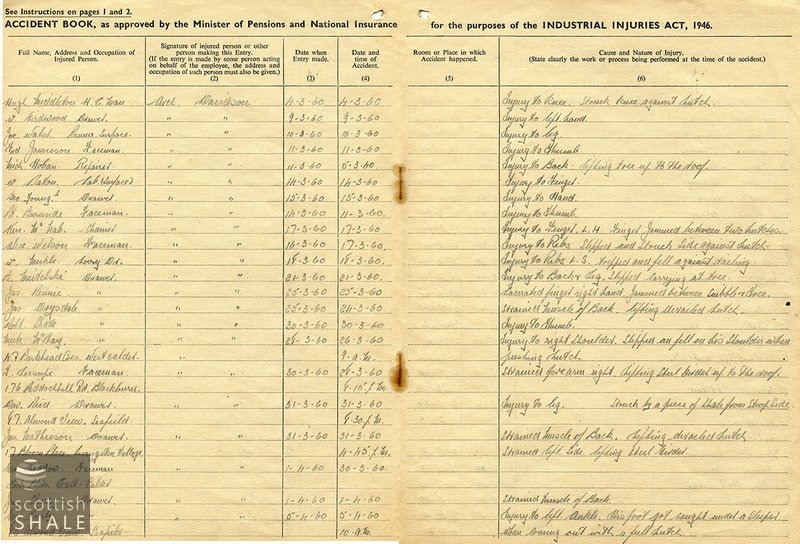 See Instructions on pages 1 and 2.
ACCIDENT BOOK, as approved by the Minister of Pensions and National Insurance for the purposes of the INDUSTRIAL INJURIES ACT, 1946.
Full Name, Address and Occupation of Injured Person.
(1)
Signature of injured person or other person making this Entry.
(If the entry is made by some person acting on behalf of the employee, the address and occupation of such person must also be given.)
(2)
Date when Entry made.
(3)
Date and time of Accident.
(4)
Room or Place in which Accident happened.
(5)
Cause and Nature of Injury.
(State clearly the work or process being performed at the time of the accident.)
(6)
Hugh Middleton 4-3-60 4-3-60 Injury to Knee. Struck knee against hutch.
W. Girdwood Drawer " " 9-3-60 9-3-60 Injury to left hand.
Joe Walsh Surface " " 10-3-60 10-3-60 Injury to leg.
Jamieson Faceman " " 11-3-60 11-3-60 Injury to Thumb.
Mich. Hoban Repairer " " 11-3-60 5-3-60 Injury to Back. lifting tree up to the roof.
W. Paton Lab. Surface " " 14-3-60 14-3-60 Injury to Finger.
Geo. Young Drawer " " 15-3-60 15-3-60 Injury to Hand.
Faceman " " 14-3-60 11-3-60 Injury to Thumb.
Ken. McNab. Chainer " " 17-3-60 17-3-60 Injury to Finger L.H. Finger Jammed between two hutches
Alex. Wilson Faceman " " 16-3-60 17-3-60 Injury to Ribs Slipped and Struck Side against hutch
W. Meikle " " 18-3-60 18-3-60 Injury to Ribs L.S. tripped and fell against
Drawer " " 21-3-60 21-3-60 Injury to Back & Leg. Slipped carrying a tree.
Jas. " " " 25-3-60 25-3-60 Lacerated finger right hand. Jammed between & tree.
Jas Drysdale " " " 25-3-60 24-3-60 Strained Muscle of Back. lifting derailed hutch.
Robt. " " " 30-3-60 30-3-60 Injury to Thumb.
McKay. " " 28-3-60 26-3-60 Injury to right Shoulder. Slipped an fell on his shoulder when
47 Parkhead Cres. West Calder. " 9-a.m. pushing hutch
Faceman " " 30-3-60 28-3-60 Strained forearm right. lifting Steel up to the roof.
176 Rd. Blackburn. 8-15 p.m.
Dav. Reid Drawer " " 31-3-60 31-3-60 Injury to leg. Struck by a piece of Shale from Stoop Side.
57. Almond View, Seafield. 9-30 p.m.
Jas. Mathieson Drawer " " 31-3-60 31-3-60 Strained Muscle of Back, lifting derailed hutch
17 Livingston Village. 4-45 p.m. Strained left. Side. lifting Steel
Faceman " " 1-4-60 30-3-60
East-Calder
Drawer " " 1-4-60 1-4-60 Strained Muscle of Back.
" " 5-4-60 5-4-60 Injury to left. Ankle. His foot got caught under a Sleeper
Almond View, Seafield 10-a.m. when coming out with a full hutch.
scottish
SHALE